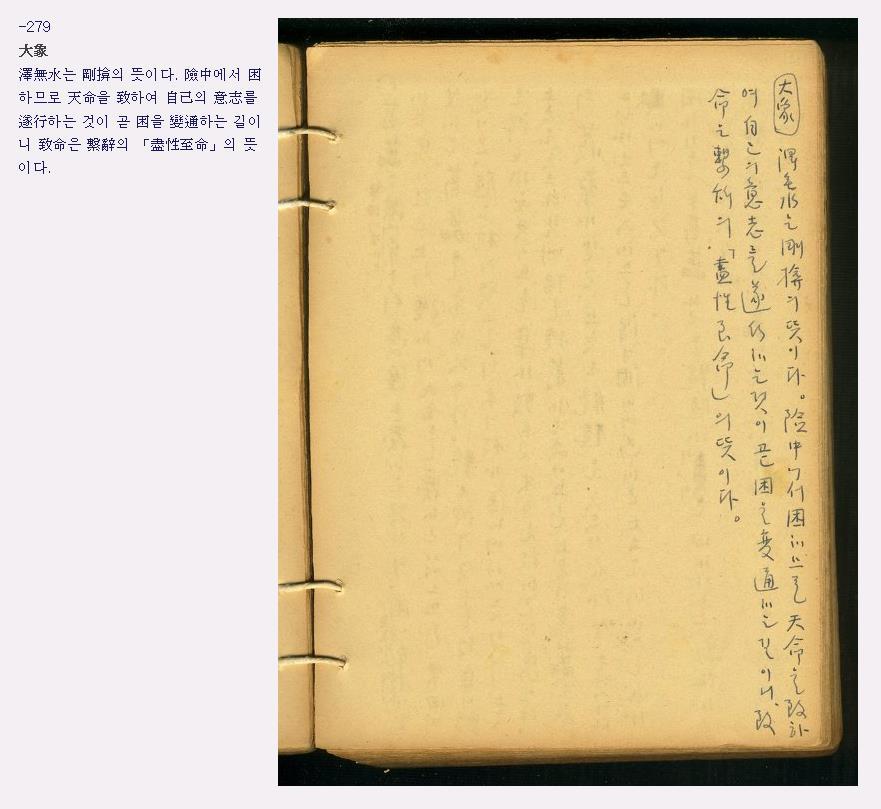 -279
大象
澤無水는 剛揜의 뜻이다. 險中에서 困
하므로 天命을 致하여 自己의 意志를
遂行하는 것이 곧 困을 變通하는 길이
니 致命은 繫辭의 「盡性至命」의 뜻
이다.
大象 澤無水는 剛揜의 뜻이다。險中에서 困하므로 天命을 致하
여 自己의 意志를 遂行하는 것이 곧 困을 変通하는 길이니、致
命은 繫辭의「盡性至命」의 뜻이다。